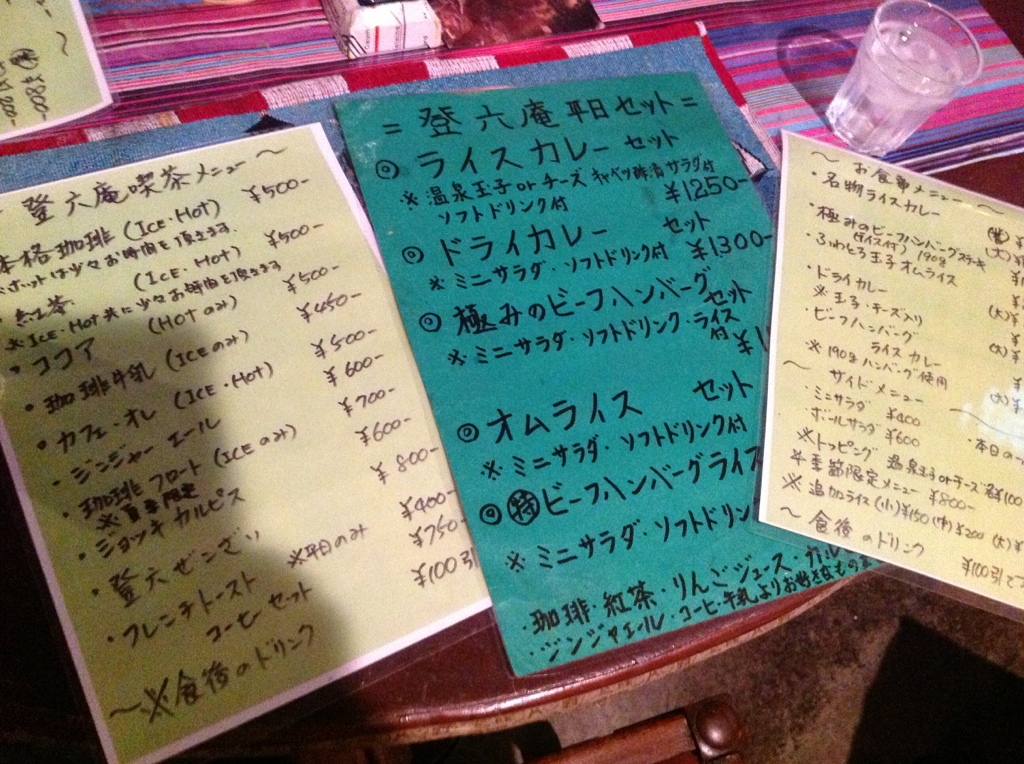 登六庵喫茶メニュー 〜
本格珈琲 (ICE・HOT) ¥500-
ホットは少々お時間を頂きます。
紅茶 (ICE・HOT) ¥500-
※ICE・HOT共に少々お時間を頂きます
・ココア (HOTのみ) ¥500-
・珈琲牛乳 (ICEのみ) ¥450-
・カフェ・オレ (ICE・HOT) ¥500-
・ジンジャーエール ¥600-
・珈琲フロート (ICEのみ) ¥700-
※夏季限定
・ジョッキカルピス ¥600-
・登六ぜんざい ¥800-
・フレンチトースト ※平日のみ ¥400-
コーヒーセット ¥750-
〜※食後のドリンク ¥100引
= 登六庵平日セット =
◎ ライスカレー セット
※ 温泉玉子orチーズ キャベツ酢漬サラダ付
ソフトドリンク付 ¥1250-
◎ ドライカレー セット
※ ミニサラダ・ソフトドリンク付 ¥1300-
◎ 極みのビーフハンバーグ セット
※ ミニサラダ・ソフトドリンク・ライス付
◎ オムライス セット
※ ミニサラダ・ソフトドリンク付
◎ 特 ビーフハンバーグライス
※ ミニサラダ・ソフトドリン
・珈琲・紅茶・りんごジュース・カル
・ジンジャエール・コーヒー牛乳よりお好きなもの
〜 お食事メニュー 〜
・名物ライスカレー
・極みのビーフハンバーグステーキ
(ライス付) 190g
・ふわとろ玉子オムライス
・ドライカレー
※玉子・チーズ入り
・ビーフハンバーグ
ライスカレー
※190gハンバーグ使用
〜 サイドメニュー 〜
・ミニサラダ ¥400
・ボールサラダ ¥600
・本日の
※トッピング 温泉玉子orチーズ 各¥100
※季節限定メニュー ¥800-
※追加ライス(小)¥150(中)¥200(大)
〜食後のドリンク ¥100引